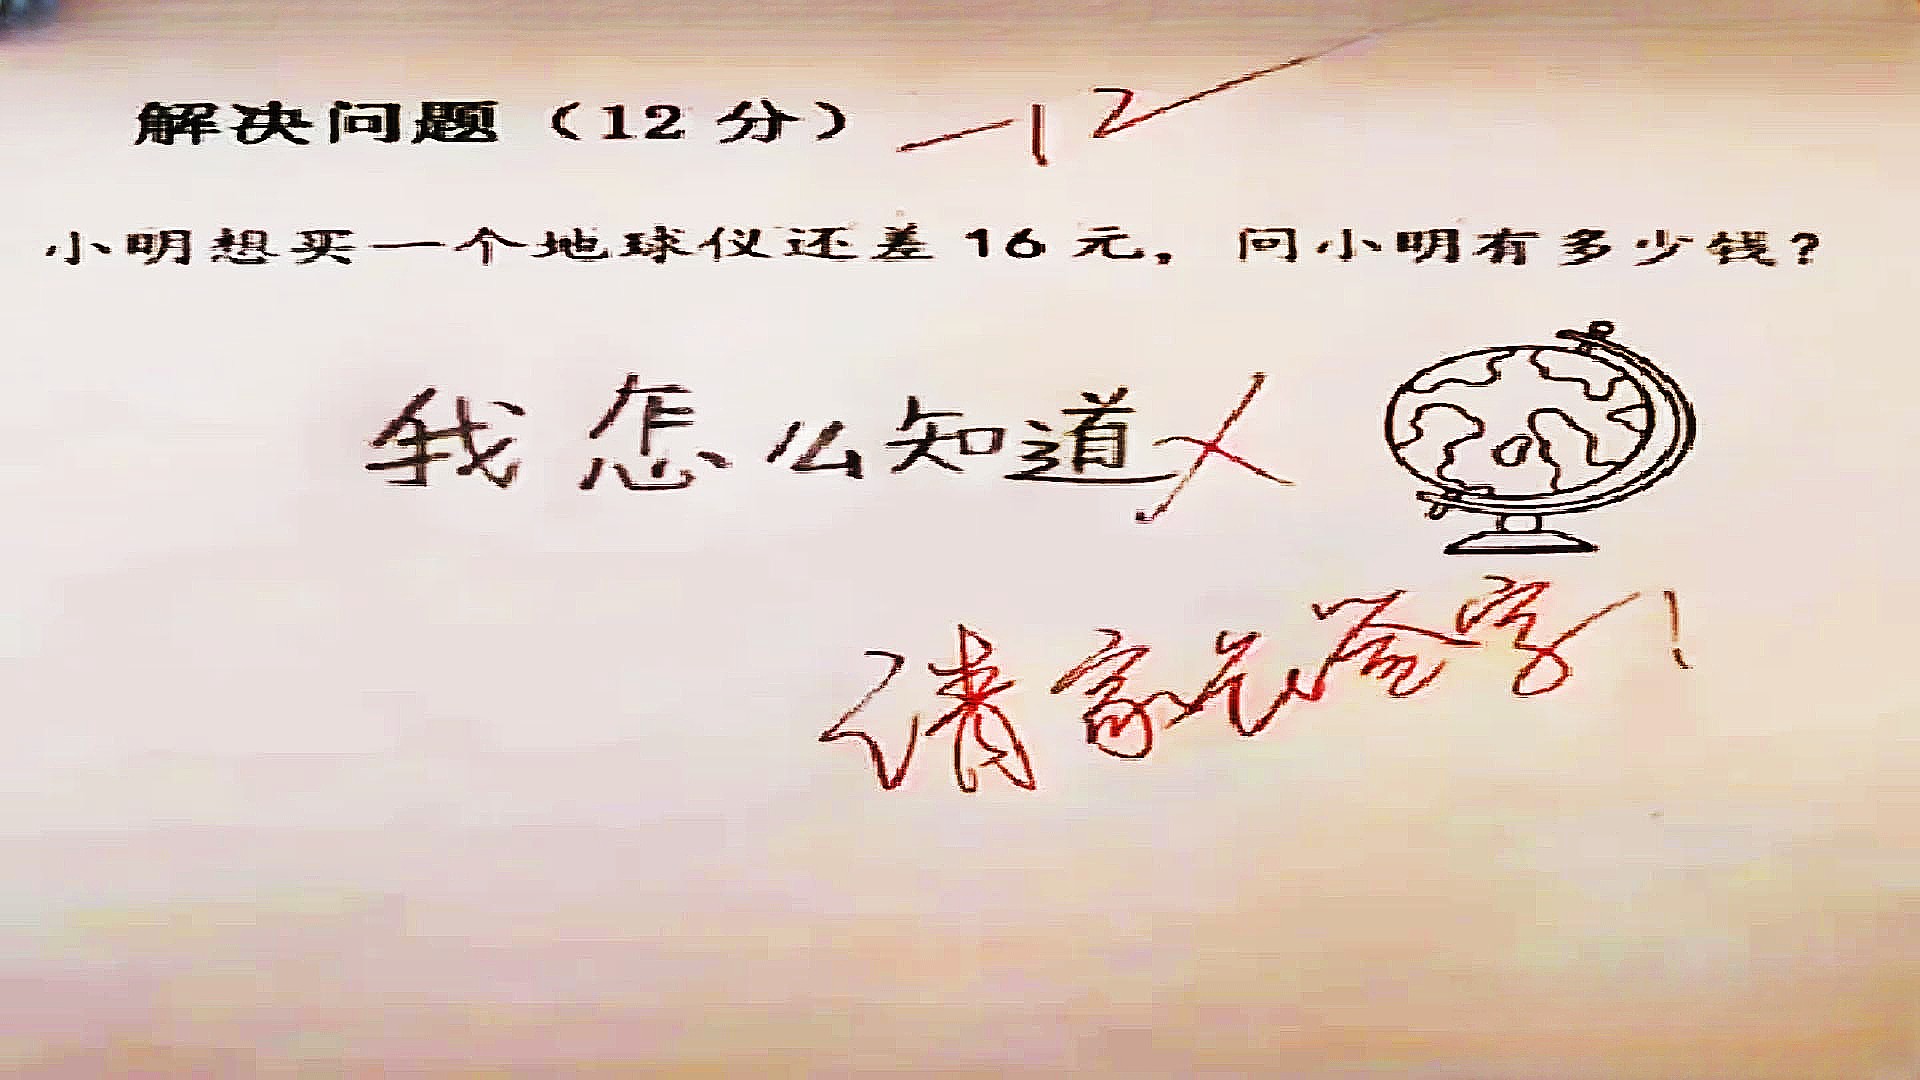 解决问题（12 分） -12
小明想买一个地球仪还差 16 元，问小明有多少钱？
我怎么知道
请家长签字！